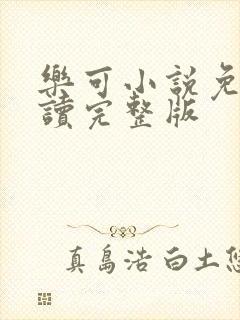 樂可小說免
讀完整版
真島浩 白土悠